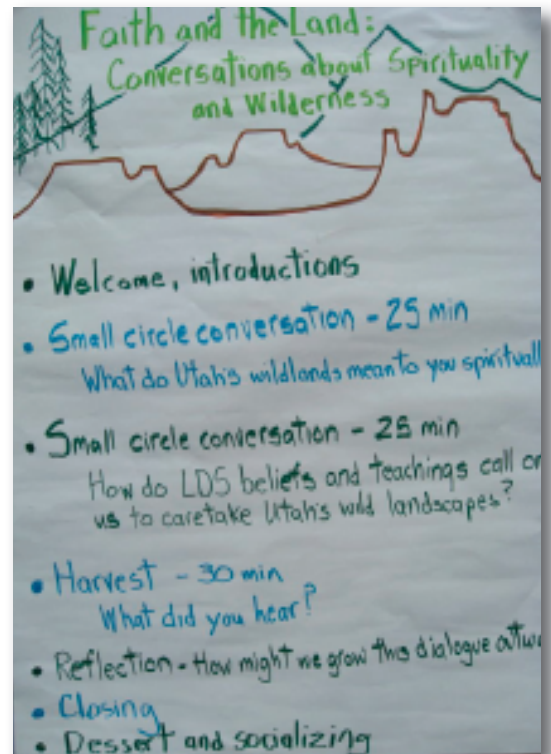 Faith and the Land:
Conversations about Spirituality
and Wilderness
• Welcome, introductions
• Small circle conversation - 25 min
What do Utah's wildlands mean to you spirituall
• Small circle conversation - 25 min
How do LDS beliefs and teachings call on
us to caretake Utah's wild landscapes?
• Harvest - 30 min
What did you hear?
• Reflection - How might we grow this dialogue outwa
• Closing
• Dessert and socializing